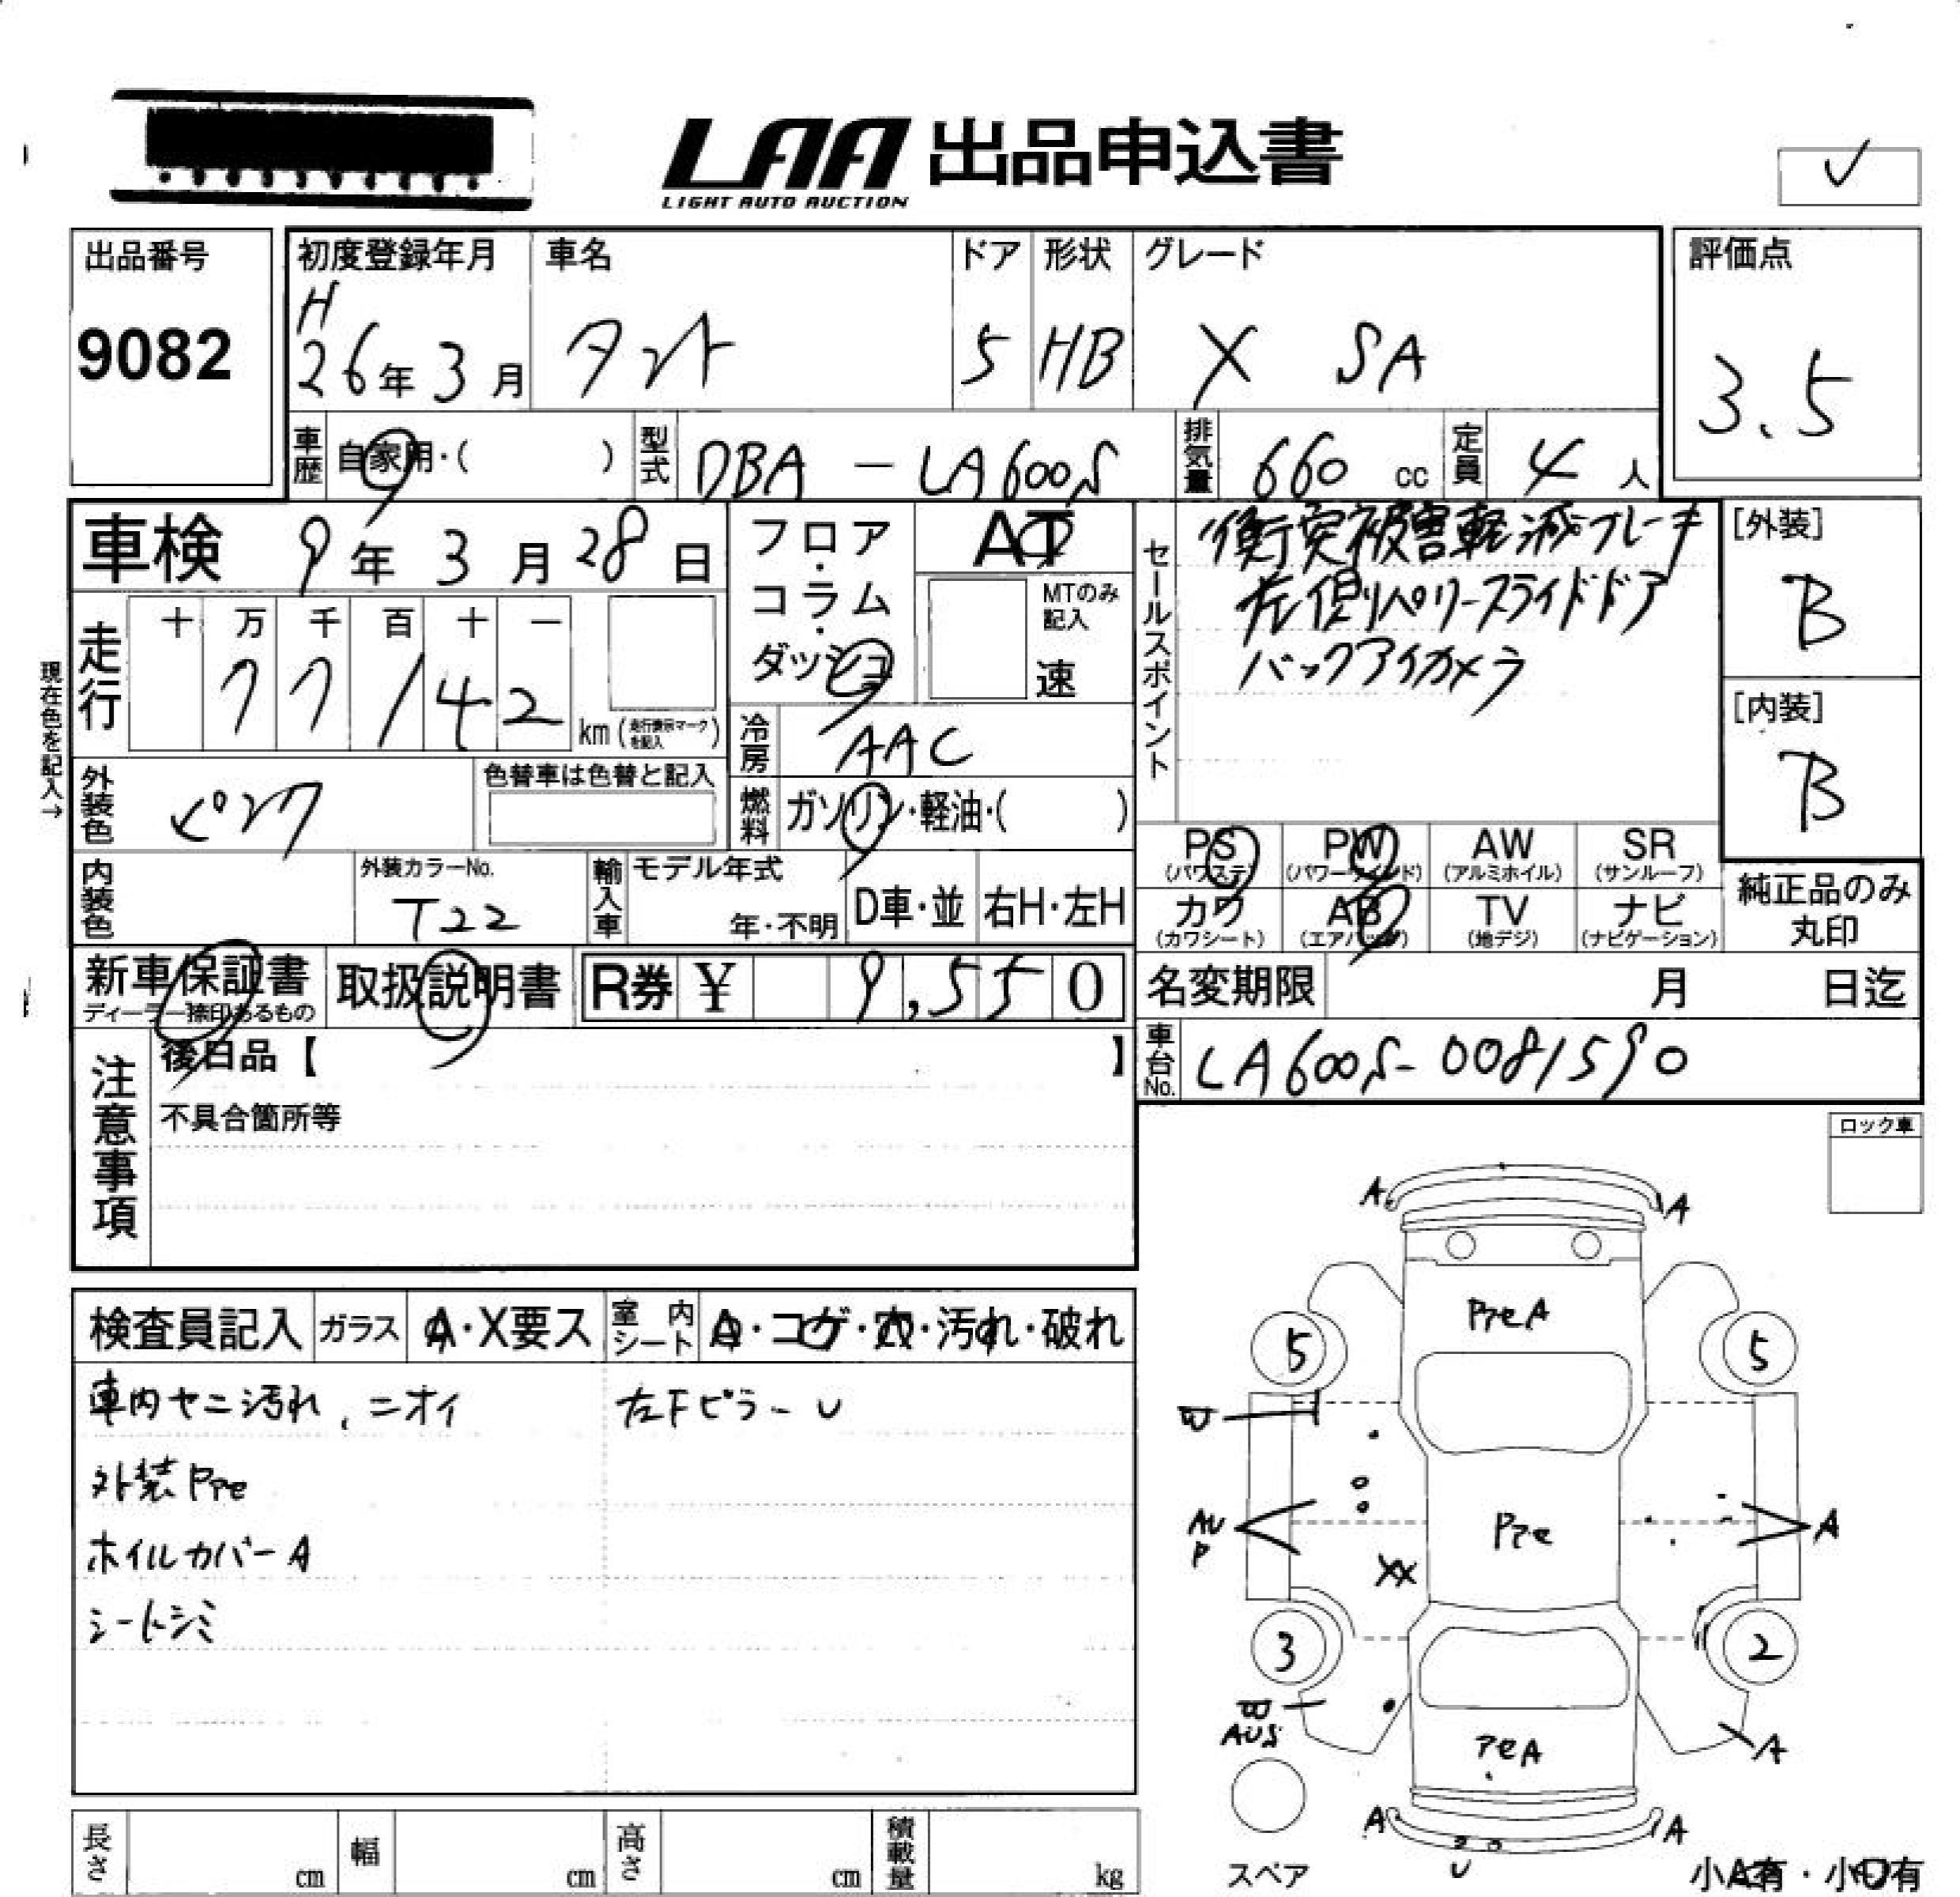 LAA 出品申込書
LIGHT AUTO AUCTION
✓
出品番号
9082
初度登録年月
H
26年 3月
車名
タント
ドア
5
形状
HB
グレード
X SA
評価点
3.5
車歴
自家用・( )
型式
DBA - LA600S
排気量
660 cc
定員
4 人
車検 9年 3月 28日
フロア・コラム・ダッシュ
AT
MTのみ記入
速
セールスポイント
衝突被害軽減ブレーキ
左側パワースライドドア
バックアイカメラ
[外装]
B
[内装]
B
現在色を記入→
走行
十 万 千 百 十 一
7 7 1 4 2
km (走行表示マークを記入)
冷房
AAC
外装色
ピンク
色替車は色替と記入
燃料
ガソリン・軽油・( )
PS (パワステ)
PW (パワーウインド)
AW (アルミホイル)
SR (サンルーフ)
カワ (カワシート)
AB (エアバッグ)
TV (地デジ)
ナビ (ナビゲーション)
純正品のみ丸印
内装色
外装カラーNo.
T22
輸入車
モデル年式
年・不明
D車・並
右H・左H
新車保証書
ディーラー捺印あるもの
取扱説明書
R券 ¥ 9,550
名変期限 月 日迄
車台No.
LA600S-0081590
注意事項
後日品【 】
不具合箇所等
ロック車
検査員記入
ガラス
A・X要ス
室内シート
A・コゲ・穴・汚れ・破れ
車内ヤニ汚れ、ニオイ
左Fピラー U
外装Pテe
ホイルカバーA
シートシミ
A A
PテeA
5 5
AU
P
Pテe
A
XX
3 2
AUS
テeA
A
A A
U
スペア
小A有・小U有
長さ cm
幅 cm
高さ cm
積載量 kg